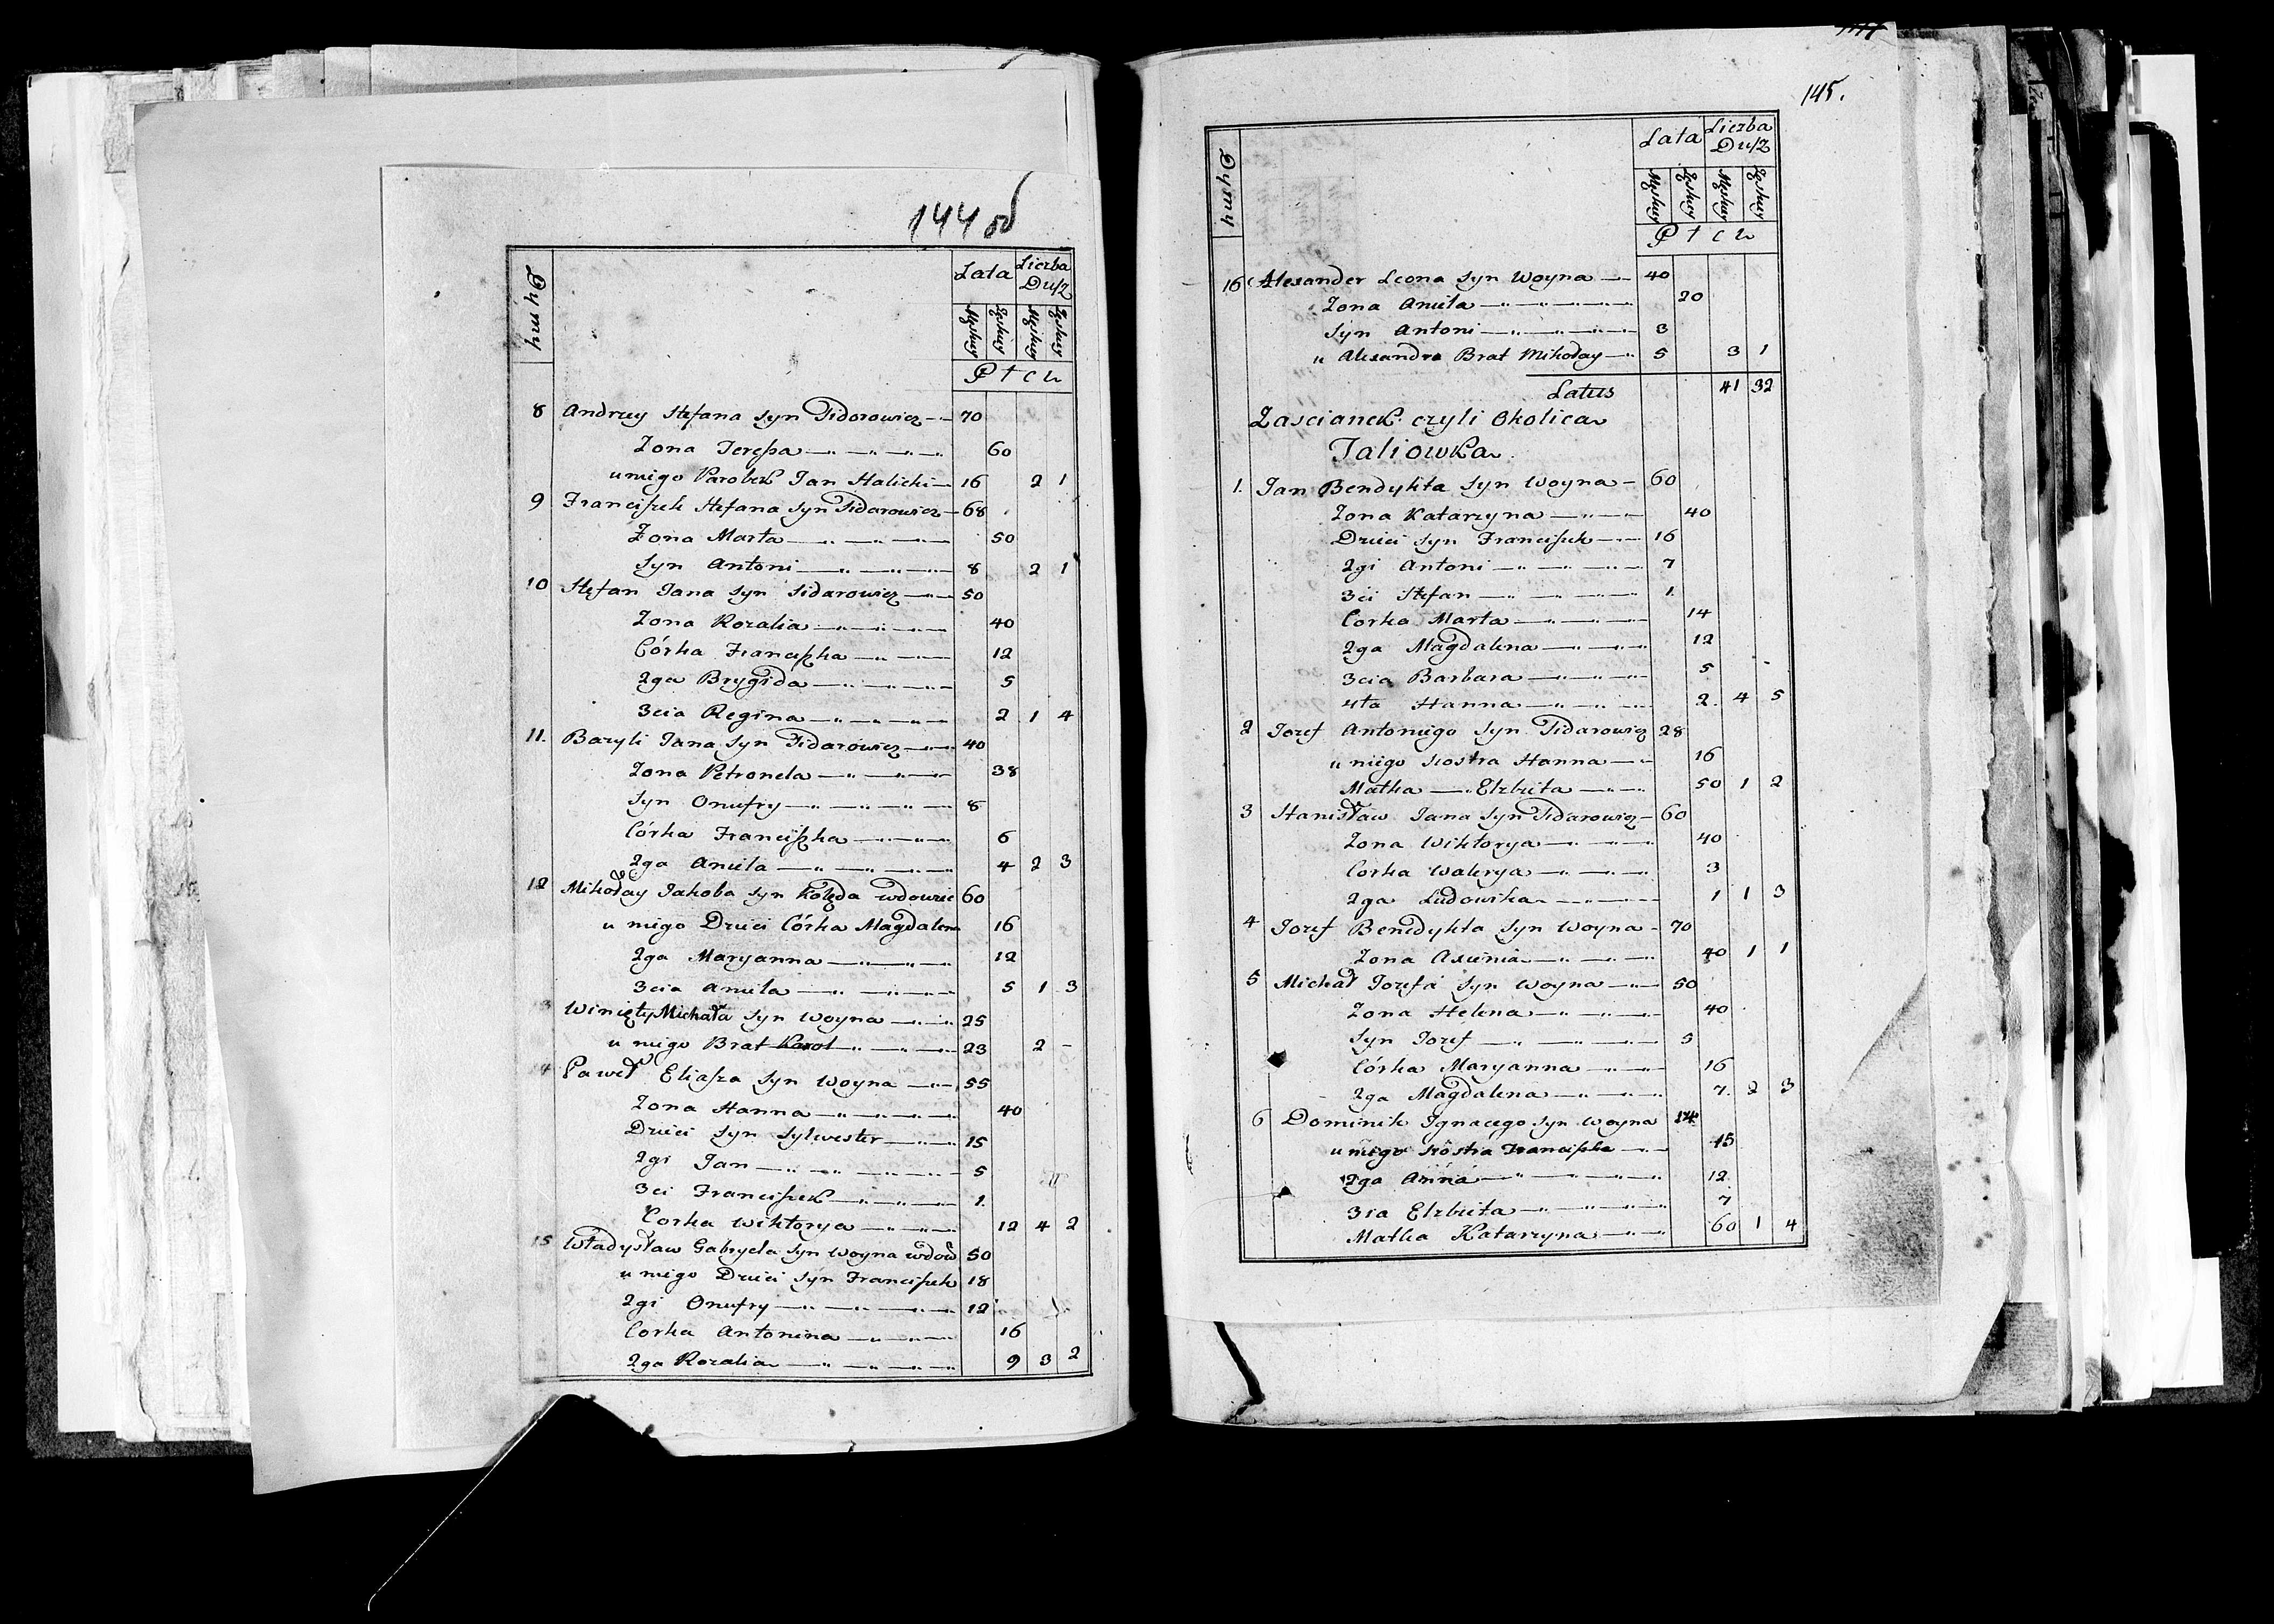 144 об
Dymy
Lata
Liczba Dusz
Męskey Żeskey Męskey Żeskey
Płch
8 Andrzey Stefana Syn Sidorowicz 70
Zona Teressa 60
u niego Parobek Jan Halicki 16 2 1
9 Franciszek Stefana Syn Sidarowicz 68
Zona Marta 50
Syn Antoni 8 2 1
10 Stefan Jana Syn Sidarowicz 50
Zona Rozalia 40
Córka Franciszka 12
2ga Brygida 5
3cia Regina 2 1 4
11. Bazyli Jana Syn Sidarowicz 40
Zona Petronela 38
Syn Onufry 8
Córka Franciszka 6
2ga Aniela 4 2 3
12 Mikołay Jakoba Syn Kolęda wdowiec 60
u niego Dzieci Córka Magdalena 16
2ga Maryanna 12
3cia Aniela 5 1 3
3 Winięty Michała Syn Woyna 25
u niego Brat Karol 23 2 -
4 Paweł Eliasza Syn Woyna 55
Zona Hanna 40
Dzieci Syn Sylwester 15
2gi Jan 5
3ci Franciszek 1.
Corka Wiktorya 12 4 2
15 Władysław Gabryela Syn Woyna wdow 50
u niego Dzieci Syn Franciszek 18
2gi Onufry 12
Corka Antonina 16
2ga Rozalia 9 3 2
145.
Dymy
Lata
Liczba Dusz
Męskey Żeskey Męskey Żeskey
Płch
16 Alexander Leona Syn Woyna 40
Zona Aniela 20
Syn Antoni 3
u Alexandra Brat Mikołay 5 3 1
Latus 41 32
Zascianek czyli Okolica
Taliowka
1. Jan Bendykta Syn Woyna 60
Zona Katarzyna 40
Dzieci Syn Franciszek 16
2gi Antoni 7
3ci Stefan 1.
Corka Marta 14
2ga Magdalena 12
3cia Barbara 5
4ta Hanna 2. 4 5
2 Jozef Antoniego Syn Sidarowicz 28
u niego siostra Hanna 16
Matka Elzbieta 50 1 2
3 Stanisław Jana Syn Sidarowicz 60
Zona Wiktorya 40
Corka Walerya 3
2ga Ludowika 1 1 3
4 Jozef Benedykta Syn Woyna 70
Zona Axinia 40 1 1
5 Michał Jozefa Syn Woyna 50
Zona Helena 40
Syn Jozef 5
Córka Maryanna 16
2ga Magdalena 7. 2 3
6 Dominik Ignacego Syn Woyna 14
u niego siostra Franciszka 15
2ga Anna 12
3ia Elzbieta 7
Matka Katarzyna 60 1 4